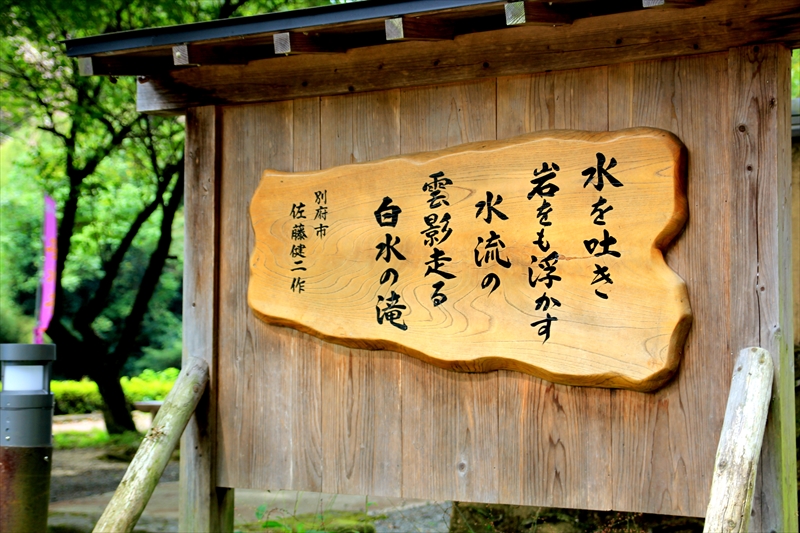 水を吐き
岩をも浮かす
水流の
雲影走る
白水の滝
別府市
佐藤健二作